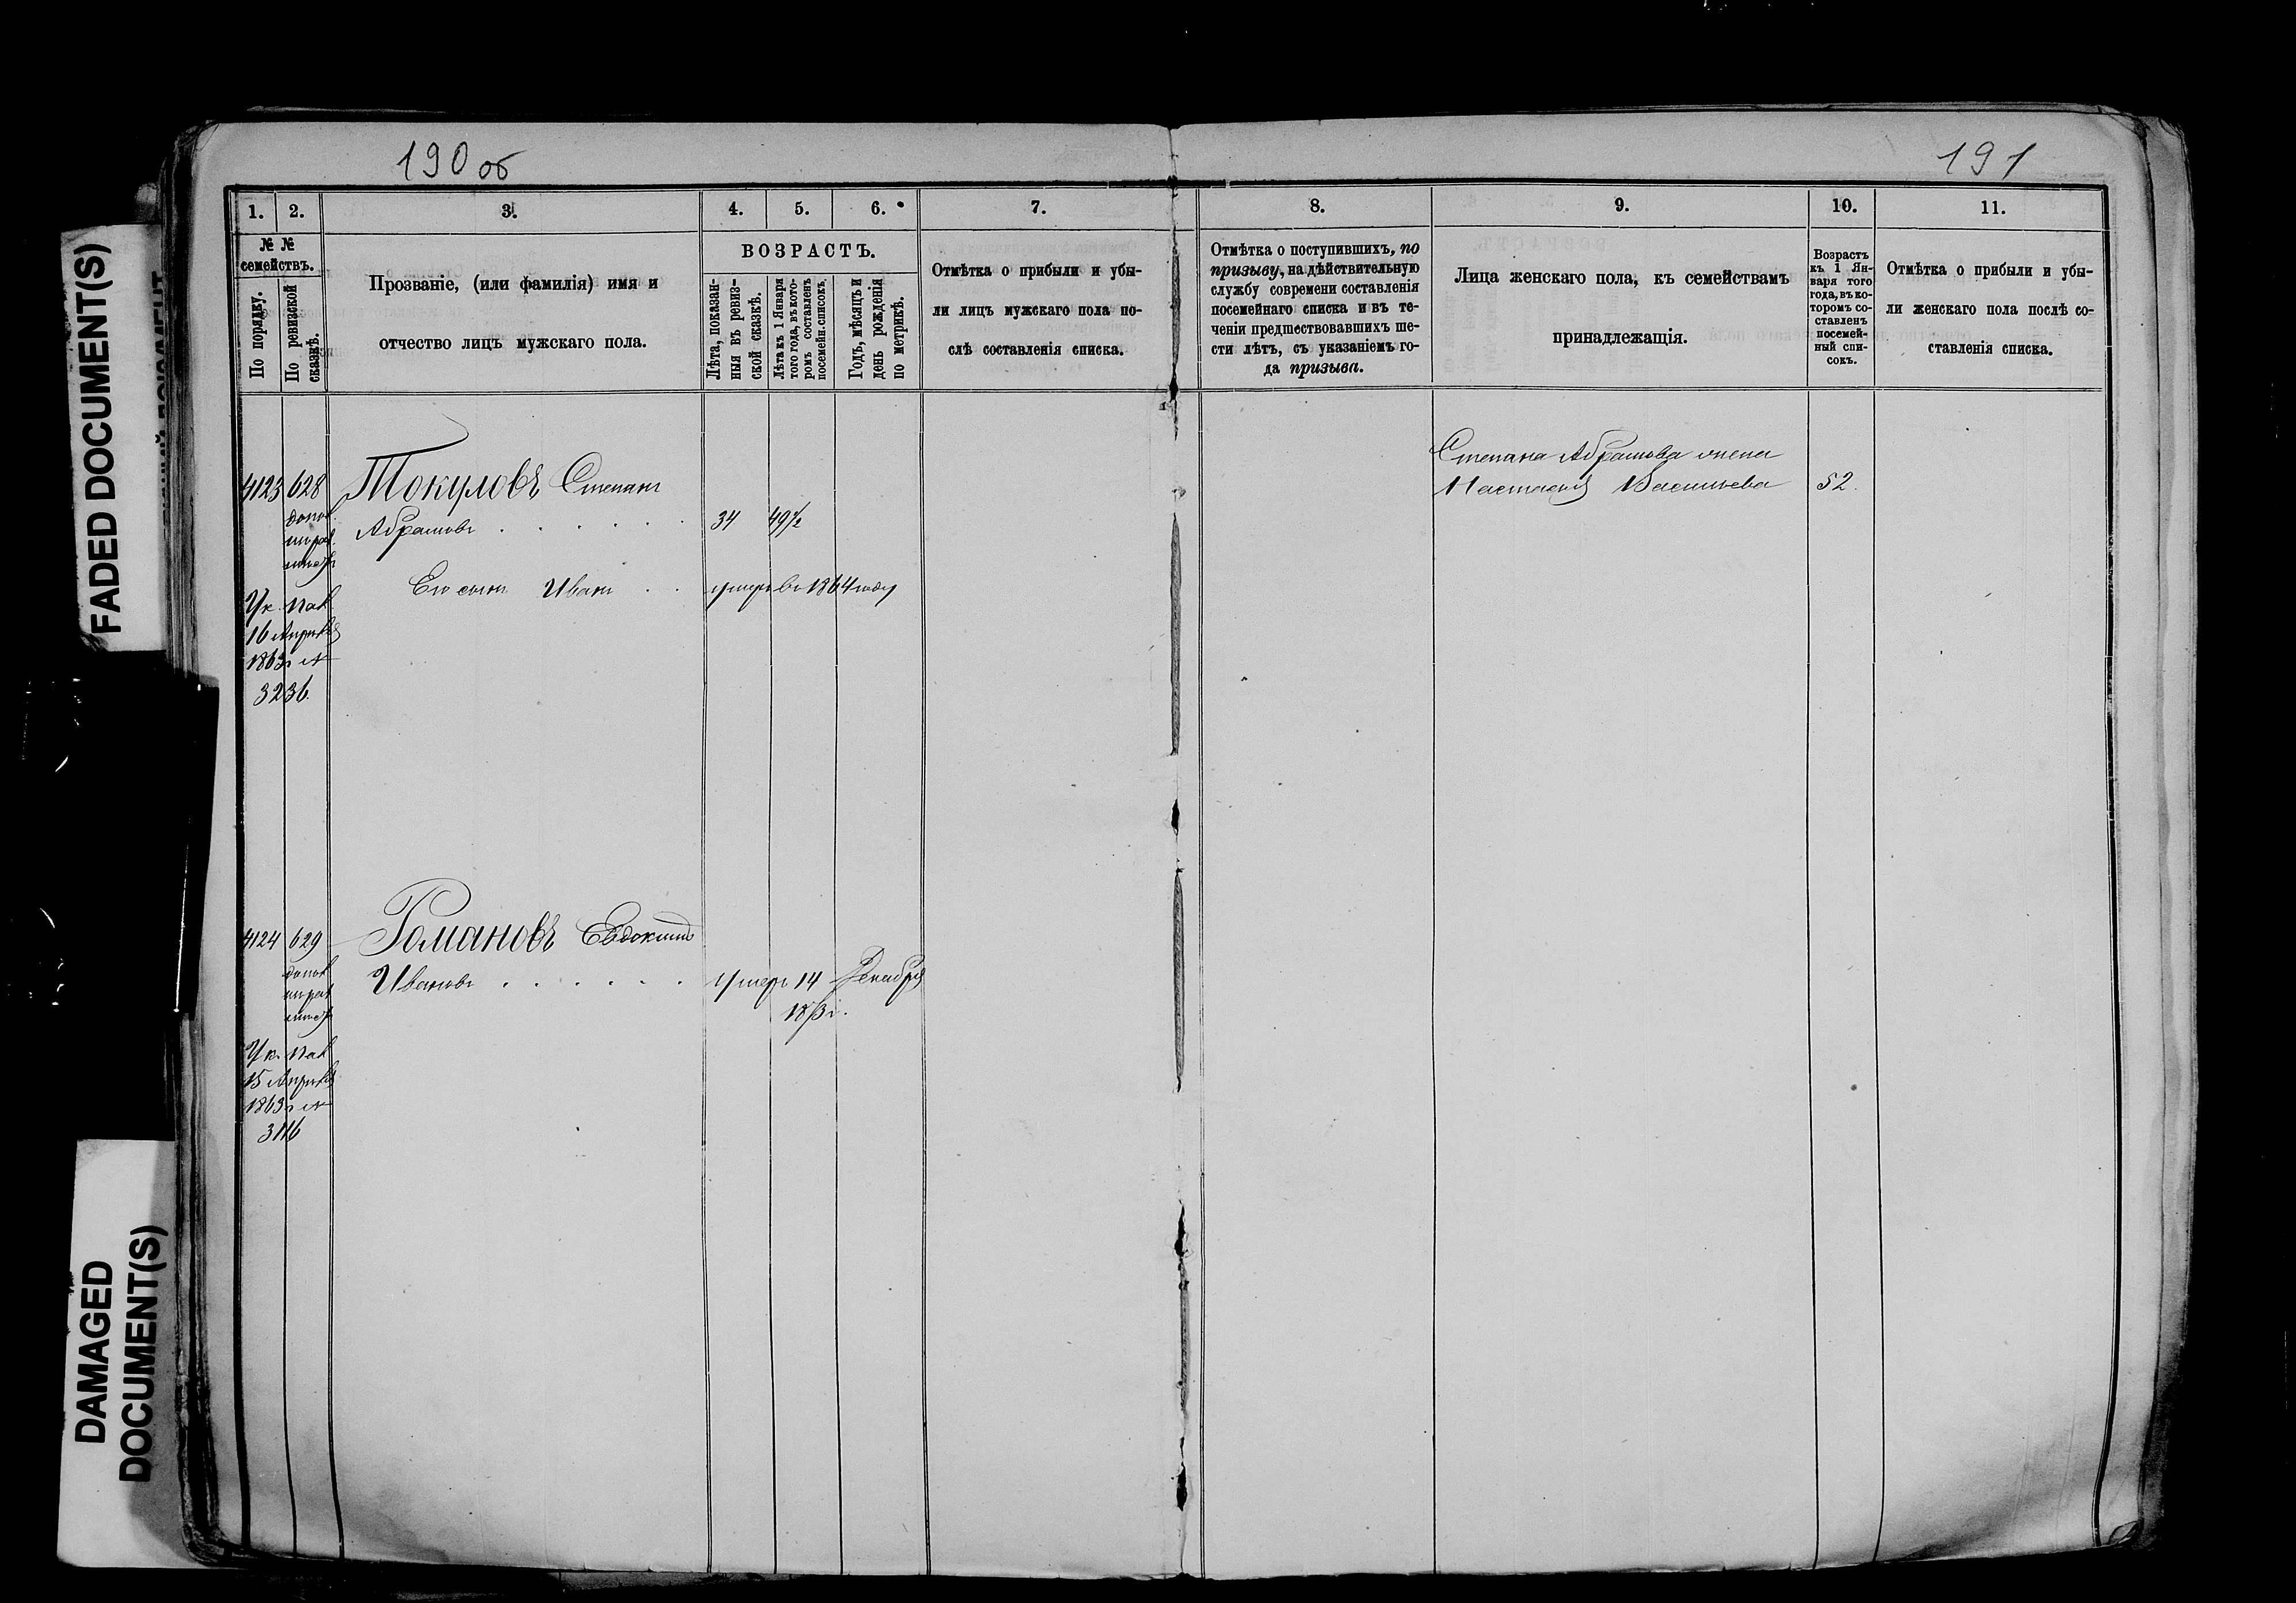 190 об
191
FADED DOCUMENT(S)
DAMAGED
DOCUMENT(S)
1. 2. 3. 4. 5. 6. 7. 8. 9. 10. 11.
№ №
семействъ.
По порядку.
По ревизской
сказкѣ.
Прозваніе, (или фамилія) имя и
отчество лицъ мужскаго пола.
ВОЗРАСТЪ.
Лѣта, показан-
ныя въ ревиз-
ской сказкѣ.
Лѣта къ 1 Января
того года, въ кото-
ромъ составленъ
посемейн. списокъ.
Годъ, мѣсяцъ и
день рожденія
по метрикѣ.
Отмѣтка о прибыли и убы-
ли лицъ мужскаго пола по-
слѣ составленія списка.
Отмѣтка о поступившихъ, по
призыву, на дѣйствительную
службу современи составленія
посемейнаго списка и въ те-
ченіи предшествовавшихъ ше-
сти лѣтъ, съ указаніемъ го-
да призыва.
Лица женскаго пола, къ семействамъ
принадлежащія.
Возрастъ
къ 1 Ян-
варя того
года, въ ко-
торомъ со-
ставленъ
посемей-
ный спи-
сокъ.
Отмѣтка о прибыли и убы-
ли женскаго пола послѣ со-
ставленія списка.
4123 628 Токуловъ Степанъ
Абрамовъ 34 49½
Его сынъ Иванъ умеръ въ 1864 году
Ук. пал.
16 Апрѣля
1863 г №
3236.
Степана Абрамова жена
Настасья Васильева 52.
4124 629 Романовъ Евдокимъ
Ивановъ умеръ 14 Декабря
Ук. пал
15 Апрѣля
1863 г №
3116